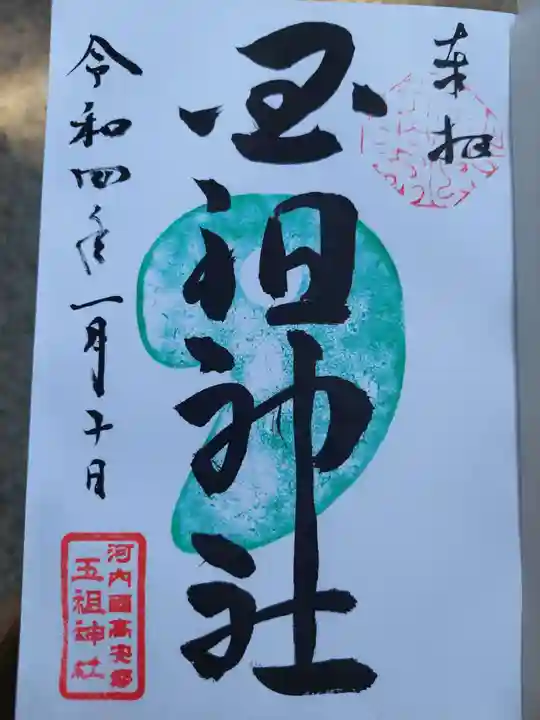 奉拝
玉祖神社
令和四年一月十日
河内國高安郷
玉祖神社